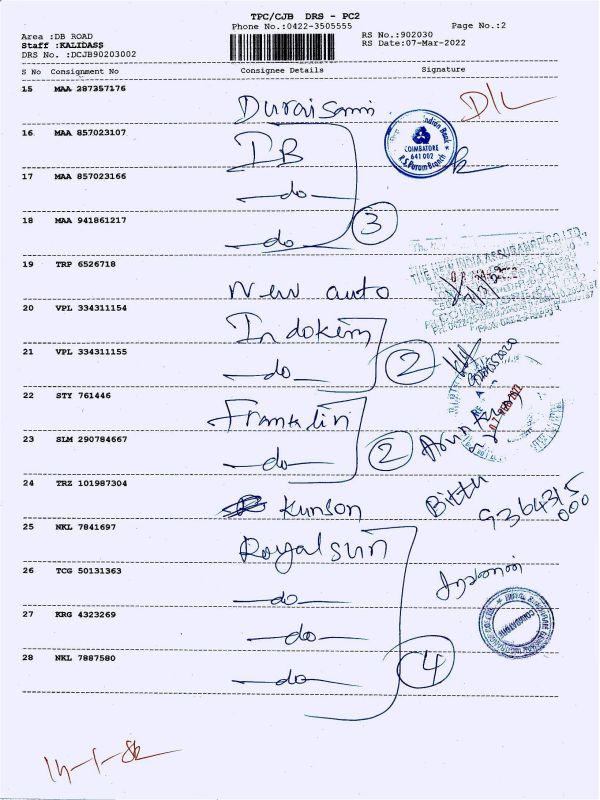 TPC/CJB DRS - PC2
Phone No.:0422-3505555 Page No.:2
Area :DB ROAD RS No.:902030
Staff :KALIDASS RS Date:07-Mar-2022
DRS No. :DCJB90203002
S No Consignment No Consignee Details Signature
15 MAA 287357176 Duraisami D/L
16 MAA 857023107 IB
Indian Bank
COIMBATORE
641 002
R.S.Puram Branch
17 MAA 857023166 -do-
18 MAA 941861217 -do- 3
19 TRP 6526718 New auto
THE NEW INDIA ASSURANCE CO LTD
20 VPL 334311154 Indokem
21 VPL 334311155 -do- 2
22 STY 761446 Franklin
23 SLM 290784667 -do- 2
24 TRZ 101987304 Kunson Bittu 9364315
000
25 NKL 7841697 Royal sun
26 TCG 50131363 -do-
27 KRG 4323269 -do-
COIMBATORE
28 NKL 7887580 -do- 4